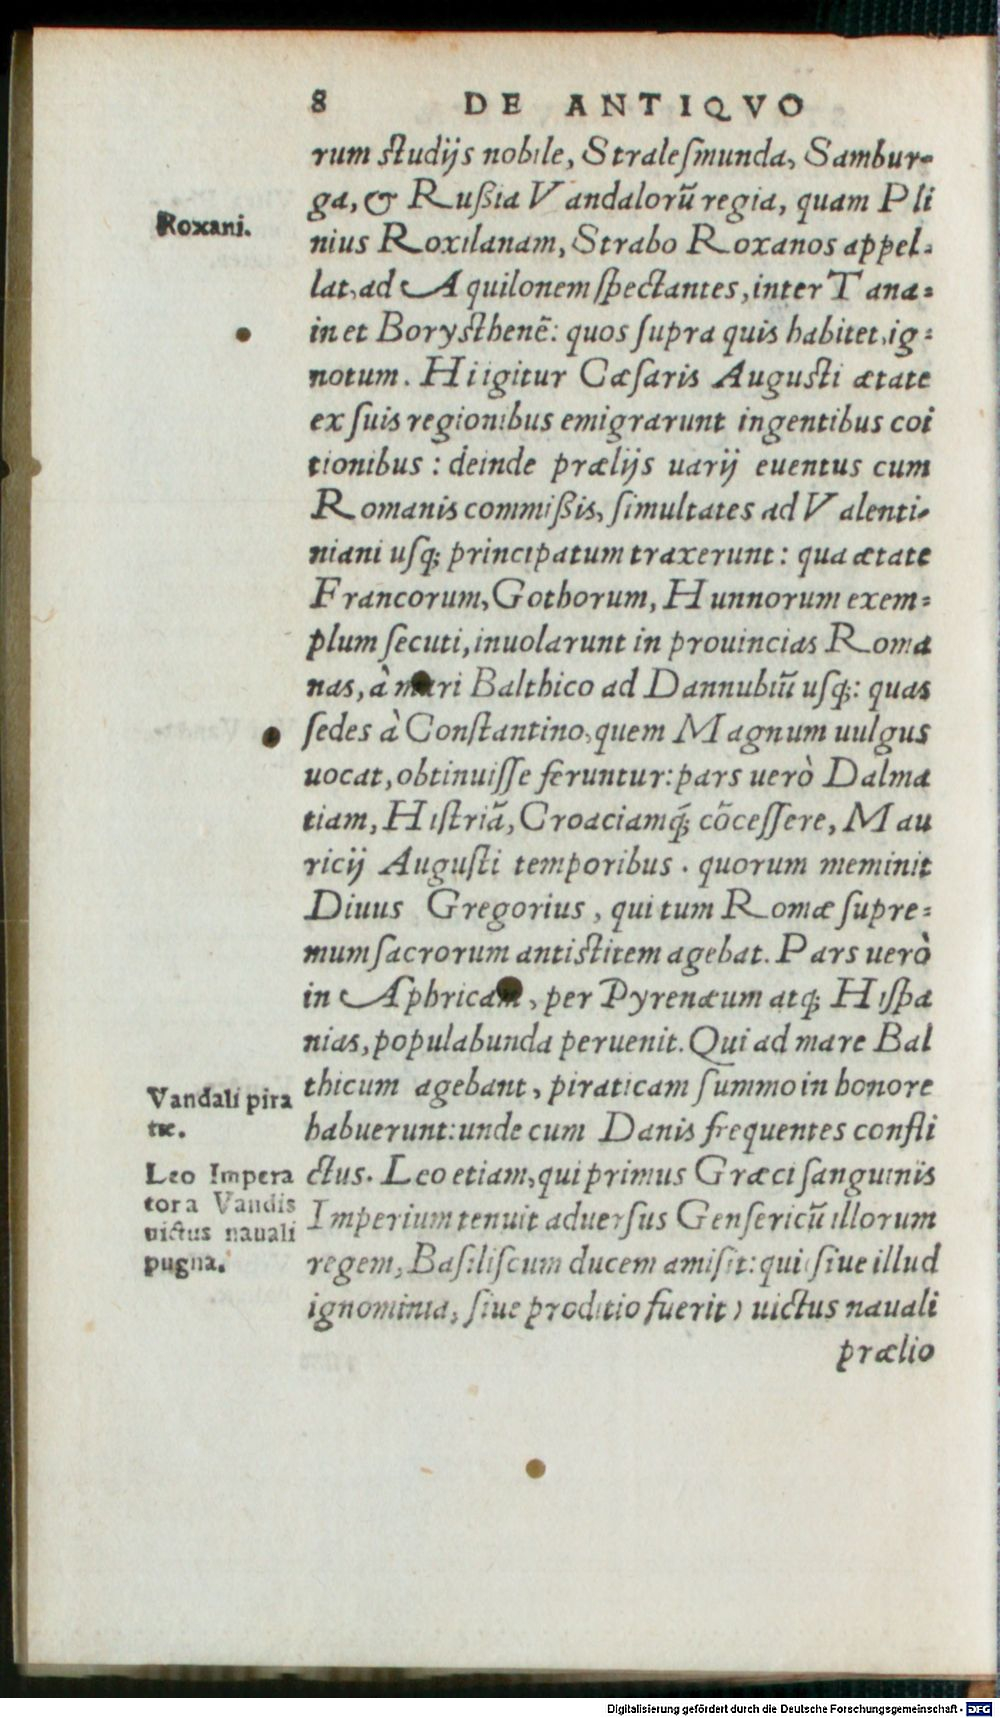 8 DE ANTIQVO
rum studijs nobile, Stralesmunda, Sambur-
ga, & Rußia Vandalorũ regia, quam Pli
Roxani.
nius Roxilanam, Strabo Roxanos appel-
lat, ad Aquilonem spectantes, inter Tana-
in et Borysthenẽ: quos supra quis habitet, ig-
notum. Hi igitur Cæsaris Augusti ætate
ex suis regionibus emigrarunt ingentibus coi
tionibus: deinde prælijs uarij euentus cum
Romanis commißis, simultates ad Valenti-
niani usq; principatum traxerunt: qua ætate
Francorum, Gothorum, Hunnorum exem-
plum secuti, inuolarunt in prouincias Roma
nas, à mari Balthico ad Dannubiũ usq;: quas
sedes à Constantino, quem Magnum uulgus
uocat, obtinuisse feruntur: pars uerò Dalma
tiam, Histriã, Croaciamq́; cõcessere, Mau
ricij Augusti temporibus. quorum meminit
Diuus Gregorius, qui tum Romæ supre-
mum sacrorum antistitem agebat. Pars uerò
in Aphricam, per Pyrenæum atq; Hispa
nias, populabunda peruenit. Qui ad mare Bal
thicum agebant, piraticam summo in honore
habuerunt: unde cum Danis frequentes confli
ctus. Leo etiam, qui primus Græci sanguinis
Imperium tenuit aduersus Gensericũ illorum
regem, Basiliscum ducem amisit: qui (siue illud
ignominia, siue proditio fuerit) uictus nauali
prælio
Vandali pira
tæ.
Leo Impera
tor a Vandis
uictus nauali
pugna.
Digitalisierung gefördert durch die Deutsche Forschungsgemeinschaft - DFG